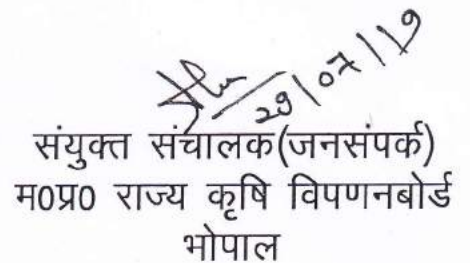 29/07/19
संयुक्त संचालक(जनसंपर्क)
म0प्र0 राज्य कृषि विपणनबोर्ड
भोपाल